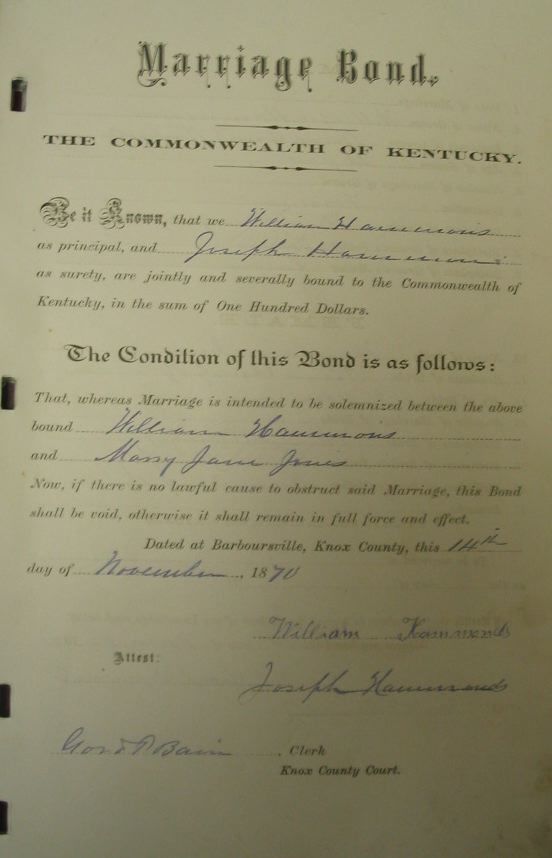 Marriage Bond.
THE COMMONWEALTH OF KENTUCKY.
Be it Known, that we William Hammons
as principal, and Joseph Hammons
as surety, are jointly and severally bound to the Commonwealth of
Kentucky, in the sum of One Hundred Dollars.
The Condition of this Bond is as follows:
That, whereas Marriage is intended to be solemnized between the above
bound William Hammons
and Marry Jane Jones
Now, if there is no lawful cause to obstruct said Marriage, this Bond
shall be void, otherwise it shall remain in full force and effect.
Dated at Barboursville, Knox County, this 14th
day of November, 1870
William Hammonds
Attest:
Joseph Hammonds
Bain, Clerk
Knox County Court.